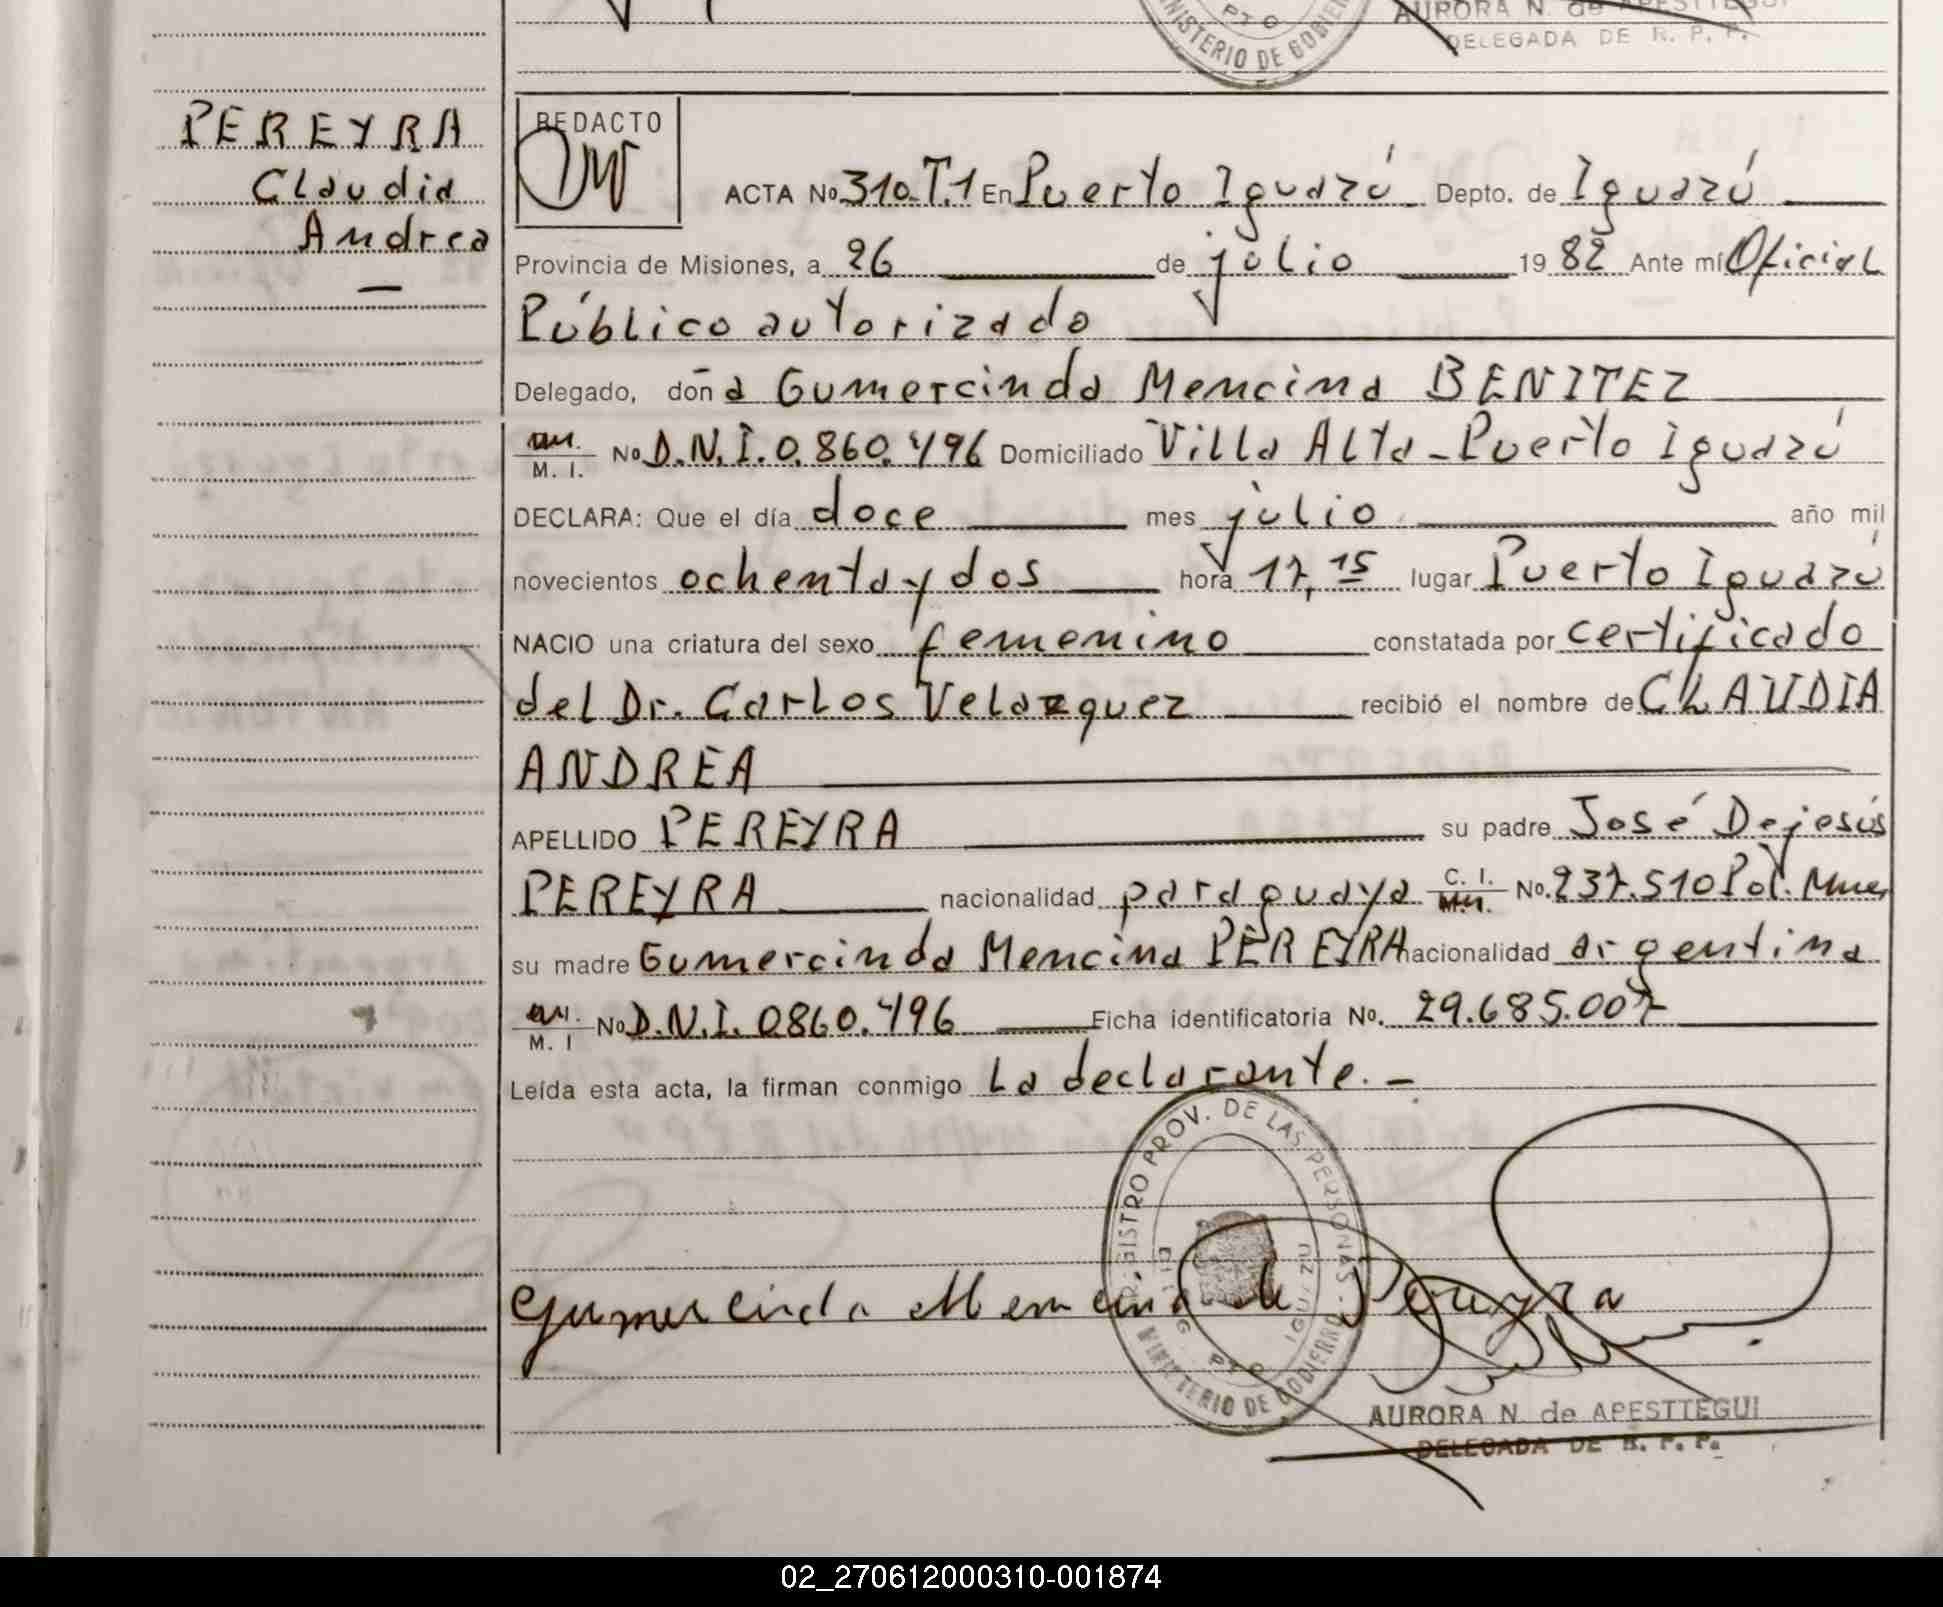 AURORA N. de APESTTEGUI
MINISTERIO DE GOBIERNO
PTO
DELEGADA DE R. P. P.
PEREYRA
Claudia
Andrea
REDACTO
ACTA No 310.T.1 En Puerto Iguazú Depto. de Iguazú
Provincia de Misiones, a 26 de julio 1982 Ante mí Oficial
Público autorizado
Delegado, doña Gumercinda Mencina BENITEZ
M. I. No D.N.I. 0.860.496 Domiciliado Villa Alta - Puerto Iguazú
DECLARA: Que el día doce mes julio año mil
novecientos ochenta y dos hora 17,15 lugar Puerto Iguazú
NACIO una criatura del sexo femenino constatada por certificado
del Dr. Carlos Velazquez recibió el nombre de CLAUDIA
ANDREA
APELLIDO PEREYRA su padre José Dejesús
PEREYRA nacionalidad paraguaya C. I. No. 237.510 Pol. Mnes
su madre Gumercinda Mencina PEREYRA nacionalidad argentina
M. I No D.N.I. 0860.496 Ficha identificatoria No. 29.685.007
Leída esta acta, la firman conmigo la declarante. -
REGISTRO PROV. DE LAS PERSONAS
PTO IGUAZU
MINISTERIO DE GOBIERNO
Gumercinda Mencina de Pereyra
AURORA N. de APESTTEGUI
DELEGADA DE R. P. P.
02_270612000310-001874